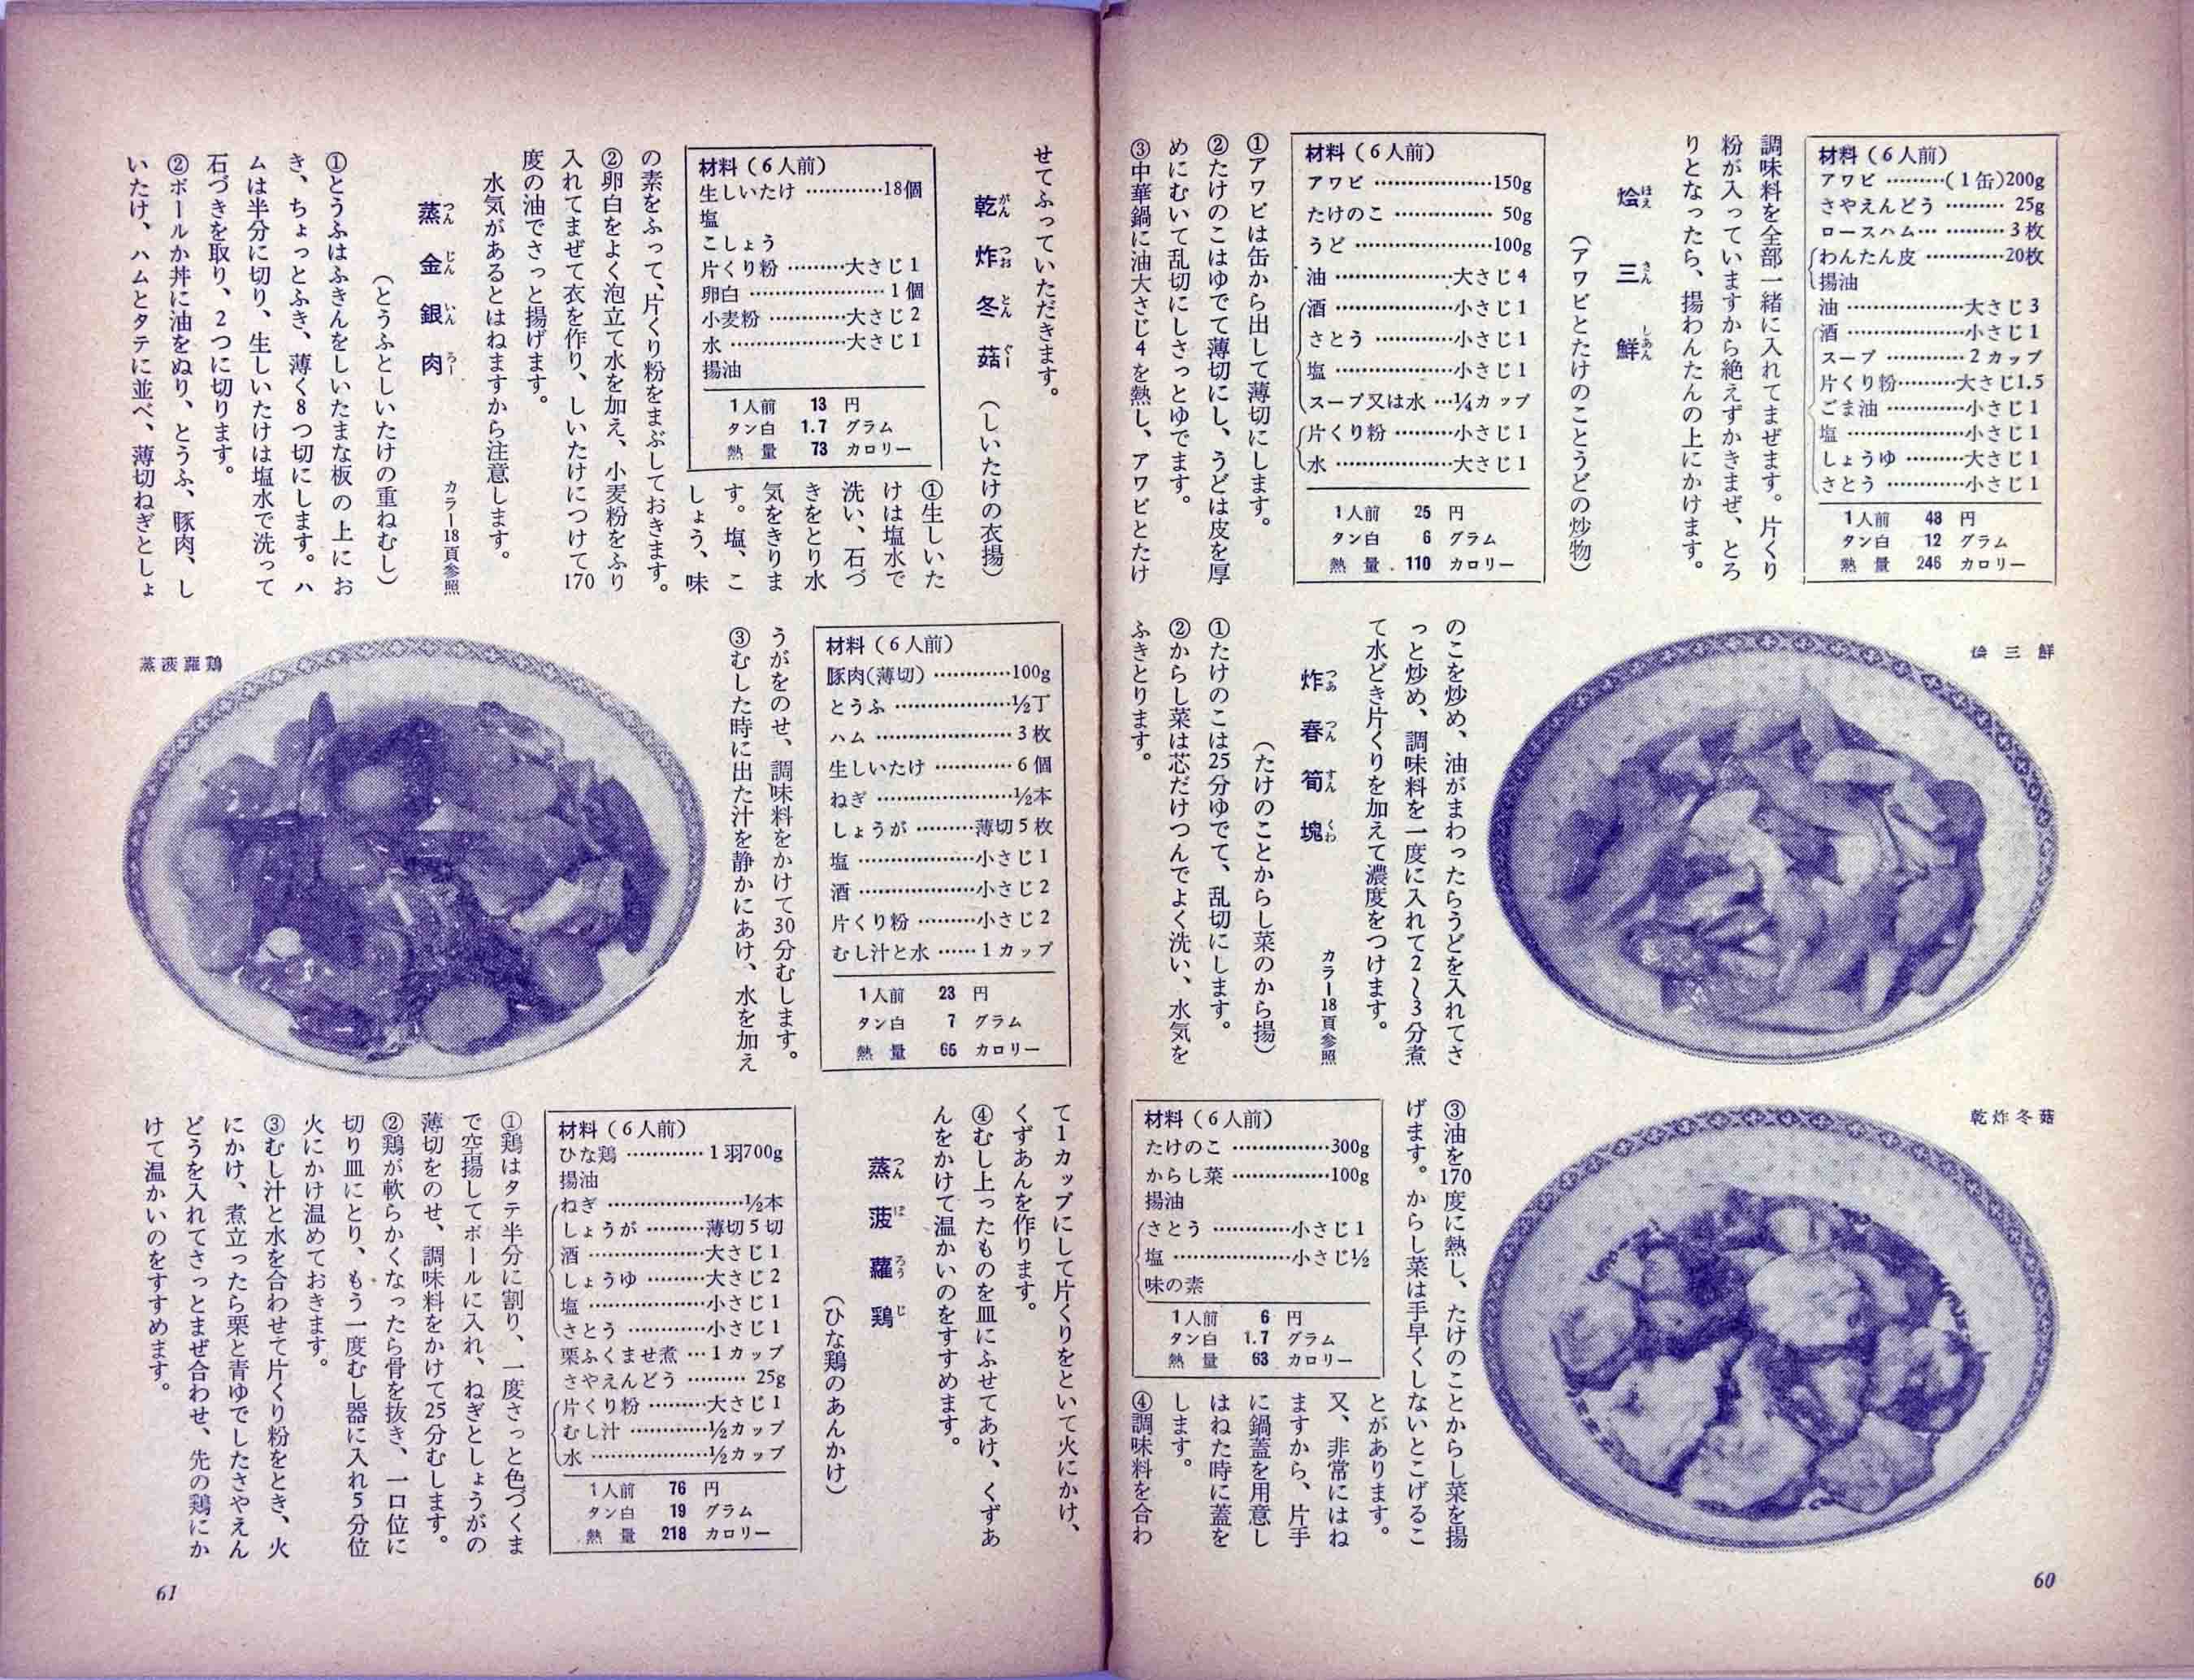 材料（6人前）
アワビ ………（1缶）200g
さやえんどう ……… 25g
ロースハム… ………3枚
わんたん皮 …………20枚
揚油
油 ………………大さじ3
酒 ………………小さじ1
スープ …………2カップ
片くり粉………大さじ1.5
ごま油 …………小さじ1
塩 ………………小さじ1
しょうゆ ………大さじ1
さとう …………小さじ1
1人前 48 円
タン白 12 グラム
熱量 246 カロリー
調味料を全部一緒に入れてまぜます。片くり
粉が入っていますから絶えずかきまぜ、とろ
りとなったら、揚わんたんの上にかけます。
烩三鮮
ほえ さん しあん
（アワビとたけのことうどの炒物）
材料（6人前）
アワビ ………………150g
たけのこ …………… 50g
うど …………………100g
油 ………………大さじ4
酒 ………………小さじ1
さとう …………小さじ1
塩 ………………小さじ1
スープ又は水 …¼カップ
片くり粉 ………小さじ1
水 ………………大さじ1
1人前 25 円
タン白 6 グラム
熱量 110 カロリー
①アワビは缶から出して薄切にします。
②たけのこはゆでて薄切にし、うどは皮を厚
めにむいて乱切にしさっとゆでます。
③中華鍋に油大さじ4を熱し、アワビとたけ
烩三鮮
のこを炒め、油がまわったらうどを入れてさ
っと炒め、調味料を一度に入れて2〜3分煮
て水どき片くりを加えて濃度をつけます。
炸春筍塊
つあ つん すん くわ
カラー18頁参照
（たけのことからし菜のから揚）
①たけのこは25分ゆでて、乱切にします。
②からし菜は芯だけつんでよく洗い、水気を
ふきとります。
乾炸冬菇
③油を170度に熱し、たけのことからし菜を揚
げます。からし菜は手早くしないとこげるこ
とがあります。
又、非常にはね
ますから、片手
に鍋蓋を用意し
はねた時に蓋を
します。
④調味料を合わ
材料（6人前）
たけのこ ……………300g
からし菜 ……………100g
揚油
さとう …………小さじ1
塩 ………………小さじ½
味の素
1人前 6 円
タン白 1.7 グラム
熱量 63 カロリー
60
せてふっていただきます。
乾炸冬菇
がん つお とん ぐー
（しいたけの衣揚）
材料（6人前）
生しいたけ …………18個
塩
こしょう
片くり粉 ………大さじ1
卵白 …………………1個
小麦粉 …………大さじ2
水 ………………大さじ1
揚油
1人前 13 円
タン白 1.7 グラム
熱量 73 カロリー
①生しいた
けは塩水で
洗い、石づ
きをとり水
気をきりま
す。塩、こ
しょう、味
の素をふって、片くり粉をまぶしておきます。
②卵白をよく泡立て水を加え、小麦粉をふり
入れてまぜて衣を作り、しいたけにつけて170
度の油でさっと揚げます。
水気があるとはねますから注意します。
蒸金銀肉
つん じん いん ろー
カラー18頁参照
（とうふとしいたけの重ねむし）
①とうふはふきんをしいたまな板の上にお
き、ちょっとふき、薄く8つ切にします。ハ
ムは半分に切り、生しいたけは塩水で洗って
石づきを取り、2つに切ります。
②ボールか丼に油をぬり、とうふ、豚肉、し
いたけ、ハムとタテに並べ、薄切ねぎとしょ
材料（6人前）
豚肉（薄切）…………100g
とうふ ………………½丁
ハム …………………3枚
生しいたけ …………6個
ねぎ …………………½本
しょうが ………薄切5枚
塩 ………………小さじ1
酒 ………………小さじ2
片くり粉 ………小さじ2
むし汁と水 ……1カップ
1人前 23 円
タン白 7 グラム
熱量 65 カロリー
うがをのせ、調味料をかけて30分むします。
③むした時に出た汁を静かにあけ、水を加え
蒸菠蘿鶏
て1カップにして片くりをといて火にかけ、
くずあんを作ります。
④むし上ったものを皿にふせてあけ、くずあ
んをかけて温かいのをすすめます。
蒸菠蘿鶏
つん ぽ ろう じ
（ひな鶏のあんかけ）
材料（6人前）
ひな鶏 …………1羽700g
揚油
ねぎ …………………½本
しょうが ………薄切5切
酒 ………………大さじ1
しょうゆ ………大さじ2
塩 ………………小さじ1
さとう …………小さじ1
栗ふくませ煮 …1カップ
さやえんどう ……… 25g
片くり粉 ………大さじ1
むし汁 …………½カップ
水 ………………½カップ
1人前 76 円
タン白 19 グラム
熱量 218 カロリー
①鶏はタテ半分に割り、一度さっと色づくま
で空揚してボールに入れ、ねぎとしょうがの
薄切をのせ、調味料をかけて25分むします。
②鶏が軟らかくなったら骨を抜き、一口位に
切り皿にとり、もう一度むし器に入れ5分位
火にかけ温めておきます。
③むし汁と水を合わせて片くり粉をとき、火
にかけ、煮立ったら栗と青ゆでしたさやえん
どうを入れてさっとまぜ合わせ、先の鶏にか
けて温かいのをすすめます。
61